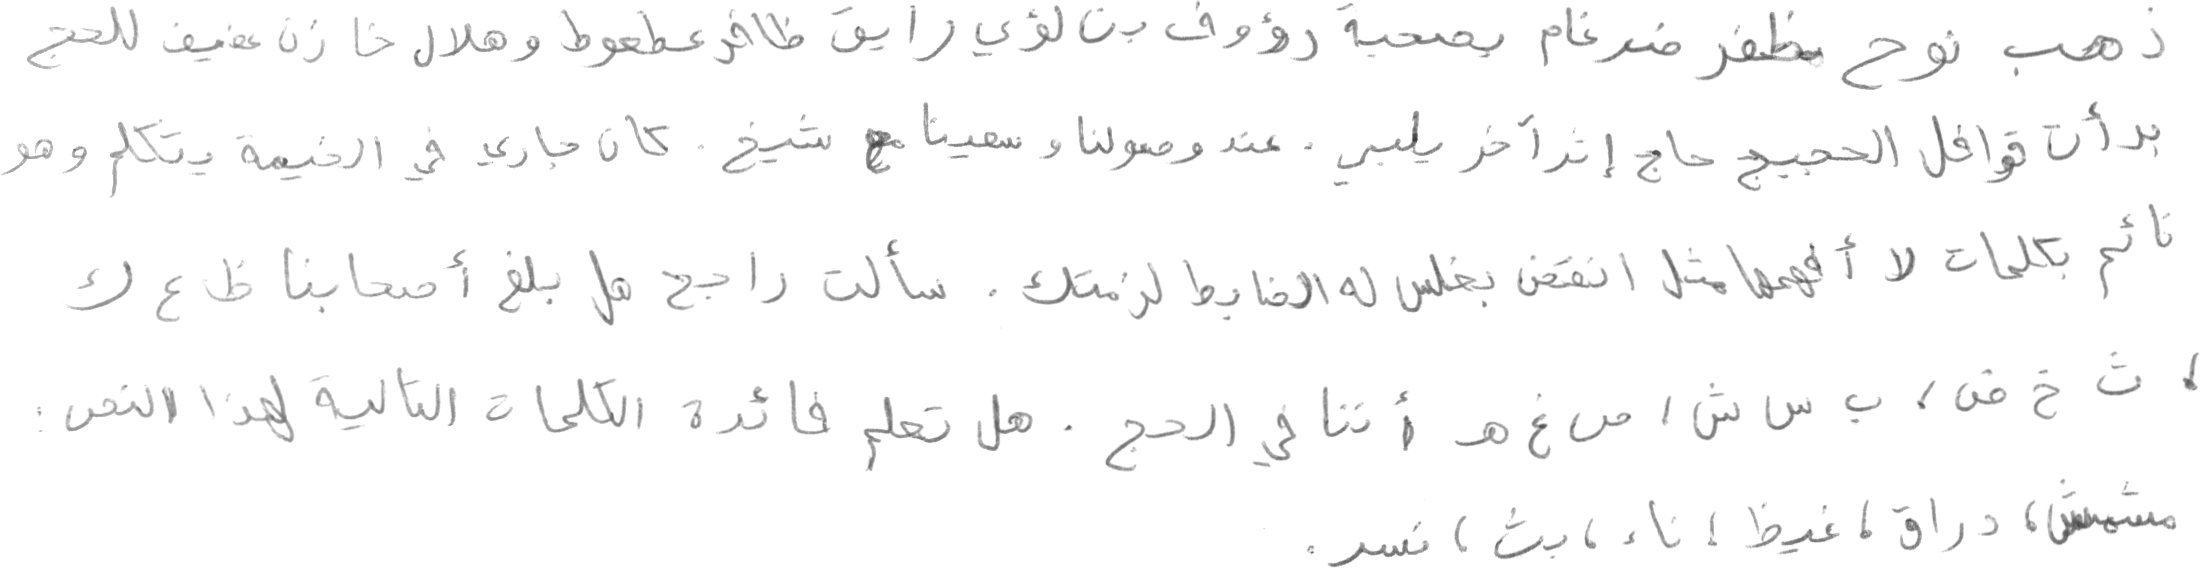 ذهب نوح مظفر ضرغام بصحبة رؤوف بن لؤي رايق ظافر عطعوط وهلال خازن عفيف للحج
بدأت قوافل الحجيج حاج إثر آخر يلبي . عند وصولنا و سعينا مع شيخ . كان جاري في الخيمة يتكلم وهو
نائم بكلمات لا أفهمها مثل انقض بغلس له الضابط لزمتك . سألت راجح هل بلغ أصحابنا ظ ع ك
، ث خ ض ، ب س ش ، ص غ هـ أننا في الحج . هل تعلم فائدة الكلمات التالية لهذا النص :
مشمش ، دراق ، غيظ ، ناء ، بث ، نسر .